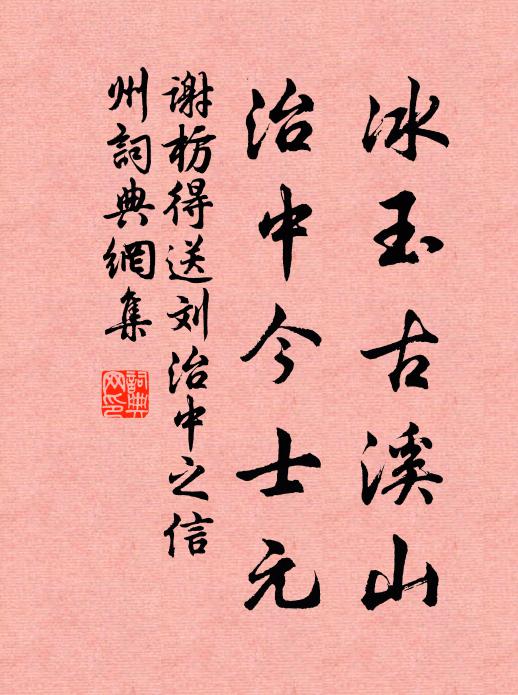 冰玉古溪山
治中今士元
谢枋得送刘治中之信
州詞典網集
詞典网印